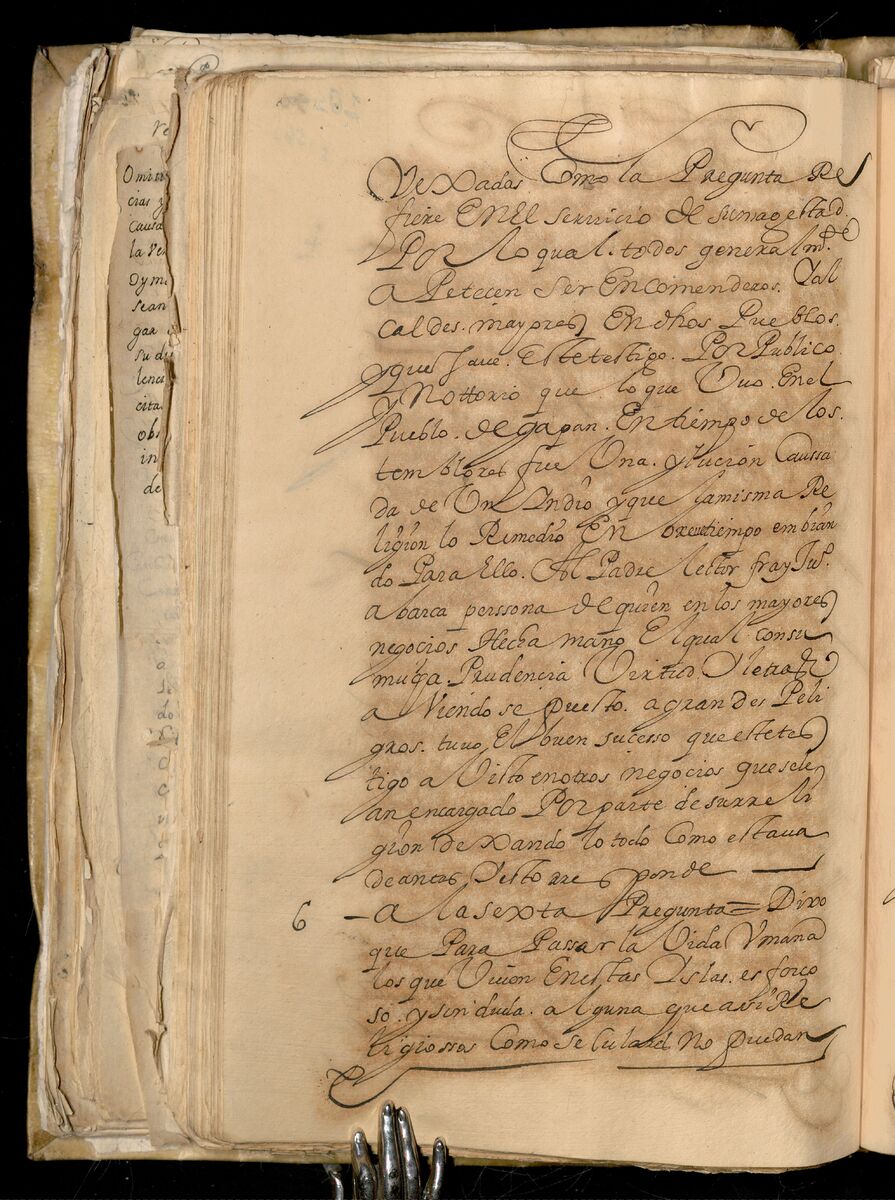 Vexadas Como la Pregunta Re
fiere En El servicio de su magestad.
Por lo qual. todos generalmte
a Petecen Ser Encomenderos. Yal
caldes. mayores En dhos Pueblos.
y que save. Este testigo. Por Publico.
y Nottorio que lo que Vuo. En el
Pueblo. de gapan. En tiempo de los.
temblores fue Una. ylucion Caussa
da de Un Indio y que la misma Re
ligion lo Remedio En tiempo embian
do Para Ello. Al Padre letor fray Jus.
abarca perssona de quien en los mayores
negocios Hecha mano El qual. con su
mucha. Prudencia Virtud. Y letras
a Viendo se puesto. a grandes Peli
gros. tuvo El buen sucesso que este tes
tigo a Visto en otros negocios que se le
an encargado Por parte de su rreli
gion dexando lo todo Como estava
de antes Y esto rresponde
6 — a la sexta Pregunta = Dixo
que Para Passar la Vida Vmana
los que Viuen En estas Yslas. es forço
so. y sin duda. alguna que asi Re
ligiossos Como seculares No puedan
Omisi
cias y
causa
la ve
Dy m
sean
gan
su di
lenc
cita
obs
in
de